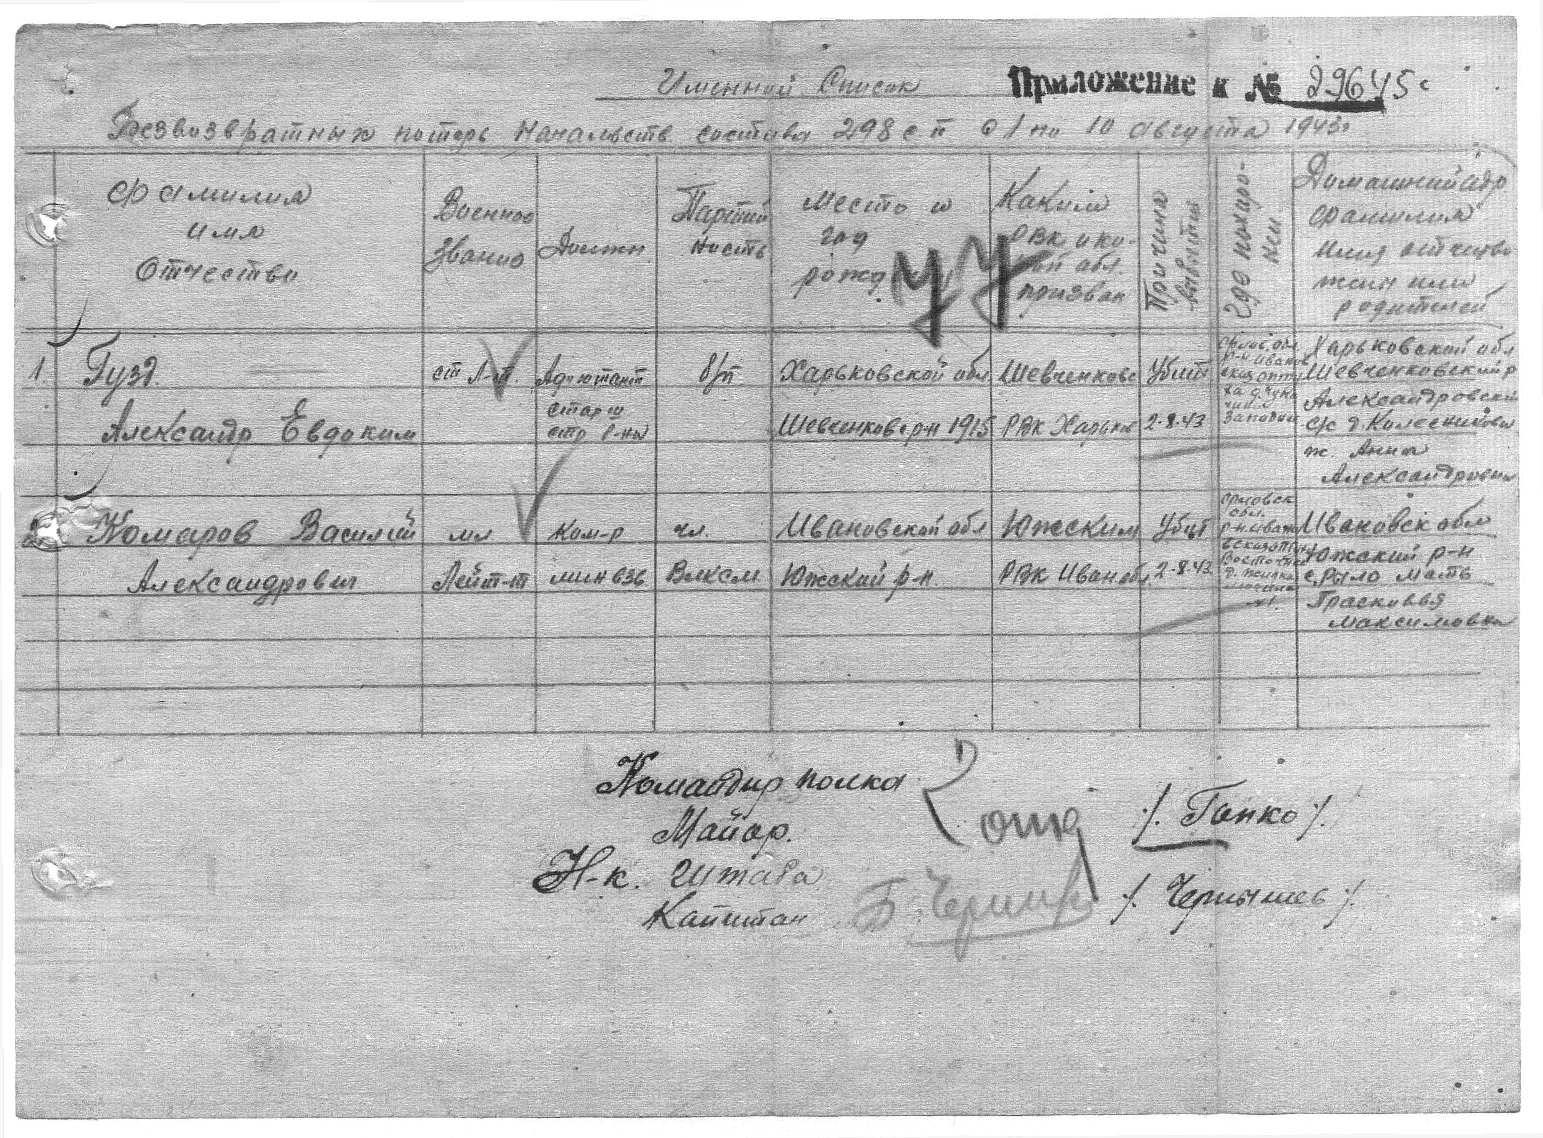 Именной Список Приложение к № 29645с
Безвозвратных потерь Начальств. состава 298 с п с 1 по 10 августа 1943г
Фамилия имя Отчество
Военное звание
Должн.
Партийность
Место и год рожд
Каким РВК и ко- обл. призван
Причина выбытия
Где похоро- нен
Домашний адр фамилия имя отчество жены или родителей
1. Гузь ст Л-т Адъютант б/п Харьковской обл Шевченково Убит
Александр Евдоким старш стр б-на Шевченков р-н 1915 РВК Харьков 2-8-43
Харьковской обл
Шевченковский р
Александровский
с/с д. Колесниковка
ж. Анна
Александровна
2. Комаров Василий мл ком-р чл. Ивановской обл Южским Убит
Александрович Лейт-т мин взв Влксм Южский р-н. РВК Иван обл. 2-8-43
Орловск обл.
Ивановск обл
Южский р-н
с. Рыло мать
Прасковья
Максимовна
Командир полка
Майор. /. Гапко /.
Н-к. Штаба
Капитан /. Чернышев /.